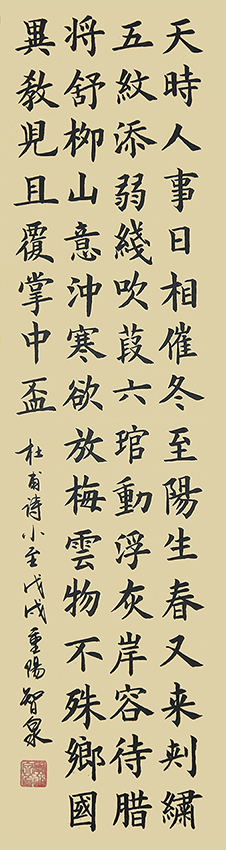 天時人事日相催冬至陽生春又来刺繡
五紋添弱綫吹葭六琯動浮灰岸容待腊
将舒柳山意沖寒欲放梅雲物不殊鄉國
異教児且覆掌中盃
杜甫诗小至戊戌重陽智泉